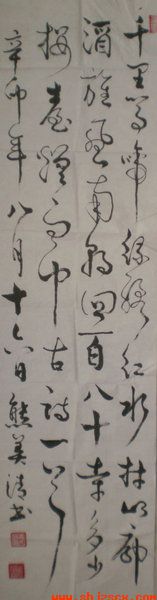 千里莺啼绿映红水村山廓
酒旗风南朝四百八十寺多少
楼台烟雨中古诗一首
辛卯年八月十六日熊美清书